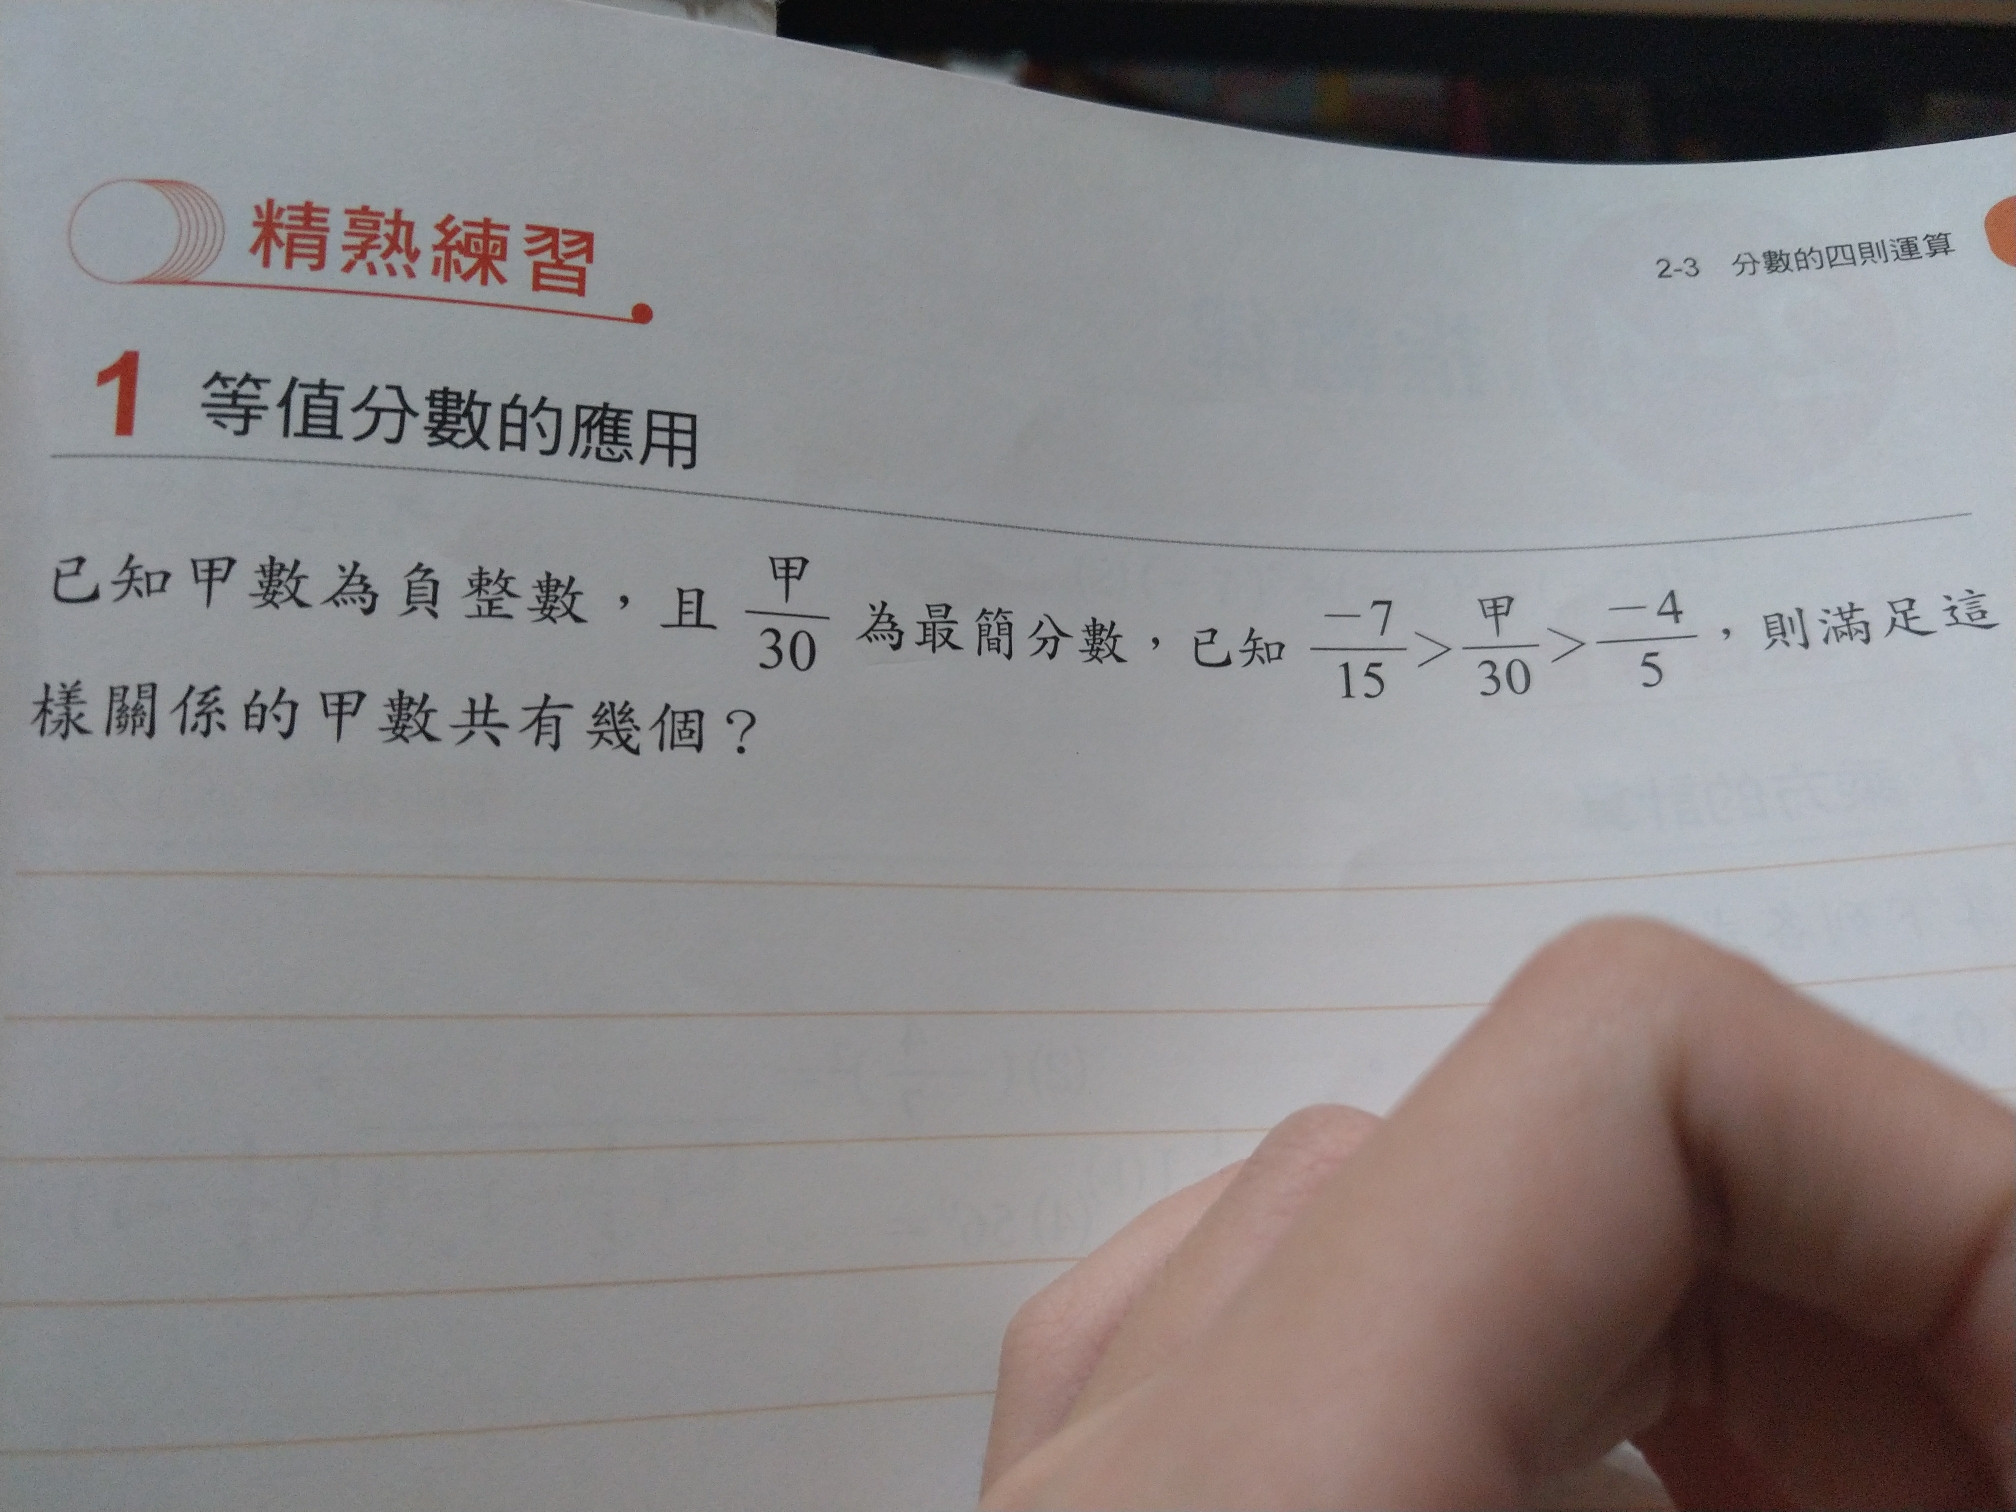 2-3 分數的四則運算
精熟練習
1 等值分數的應用
已知甲數為負整數，且 甲/30 為最簡分數，已知 -7/15 > 甲/30 > -4/5，則滿足這
樣關係的甲數共有幾個？